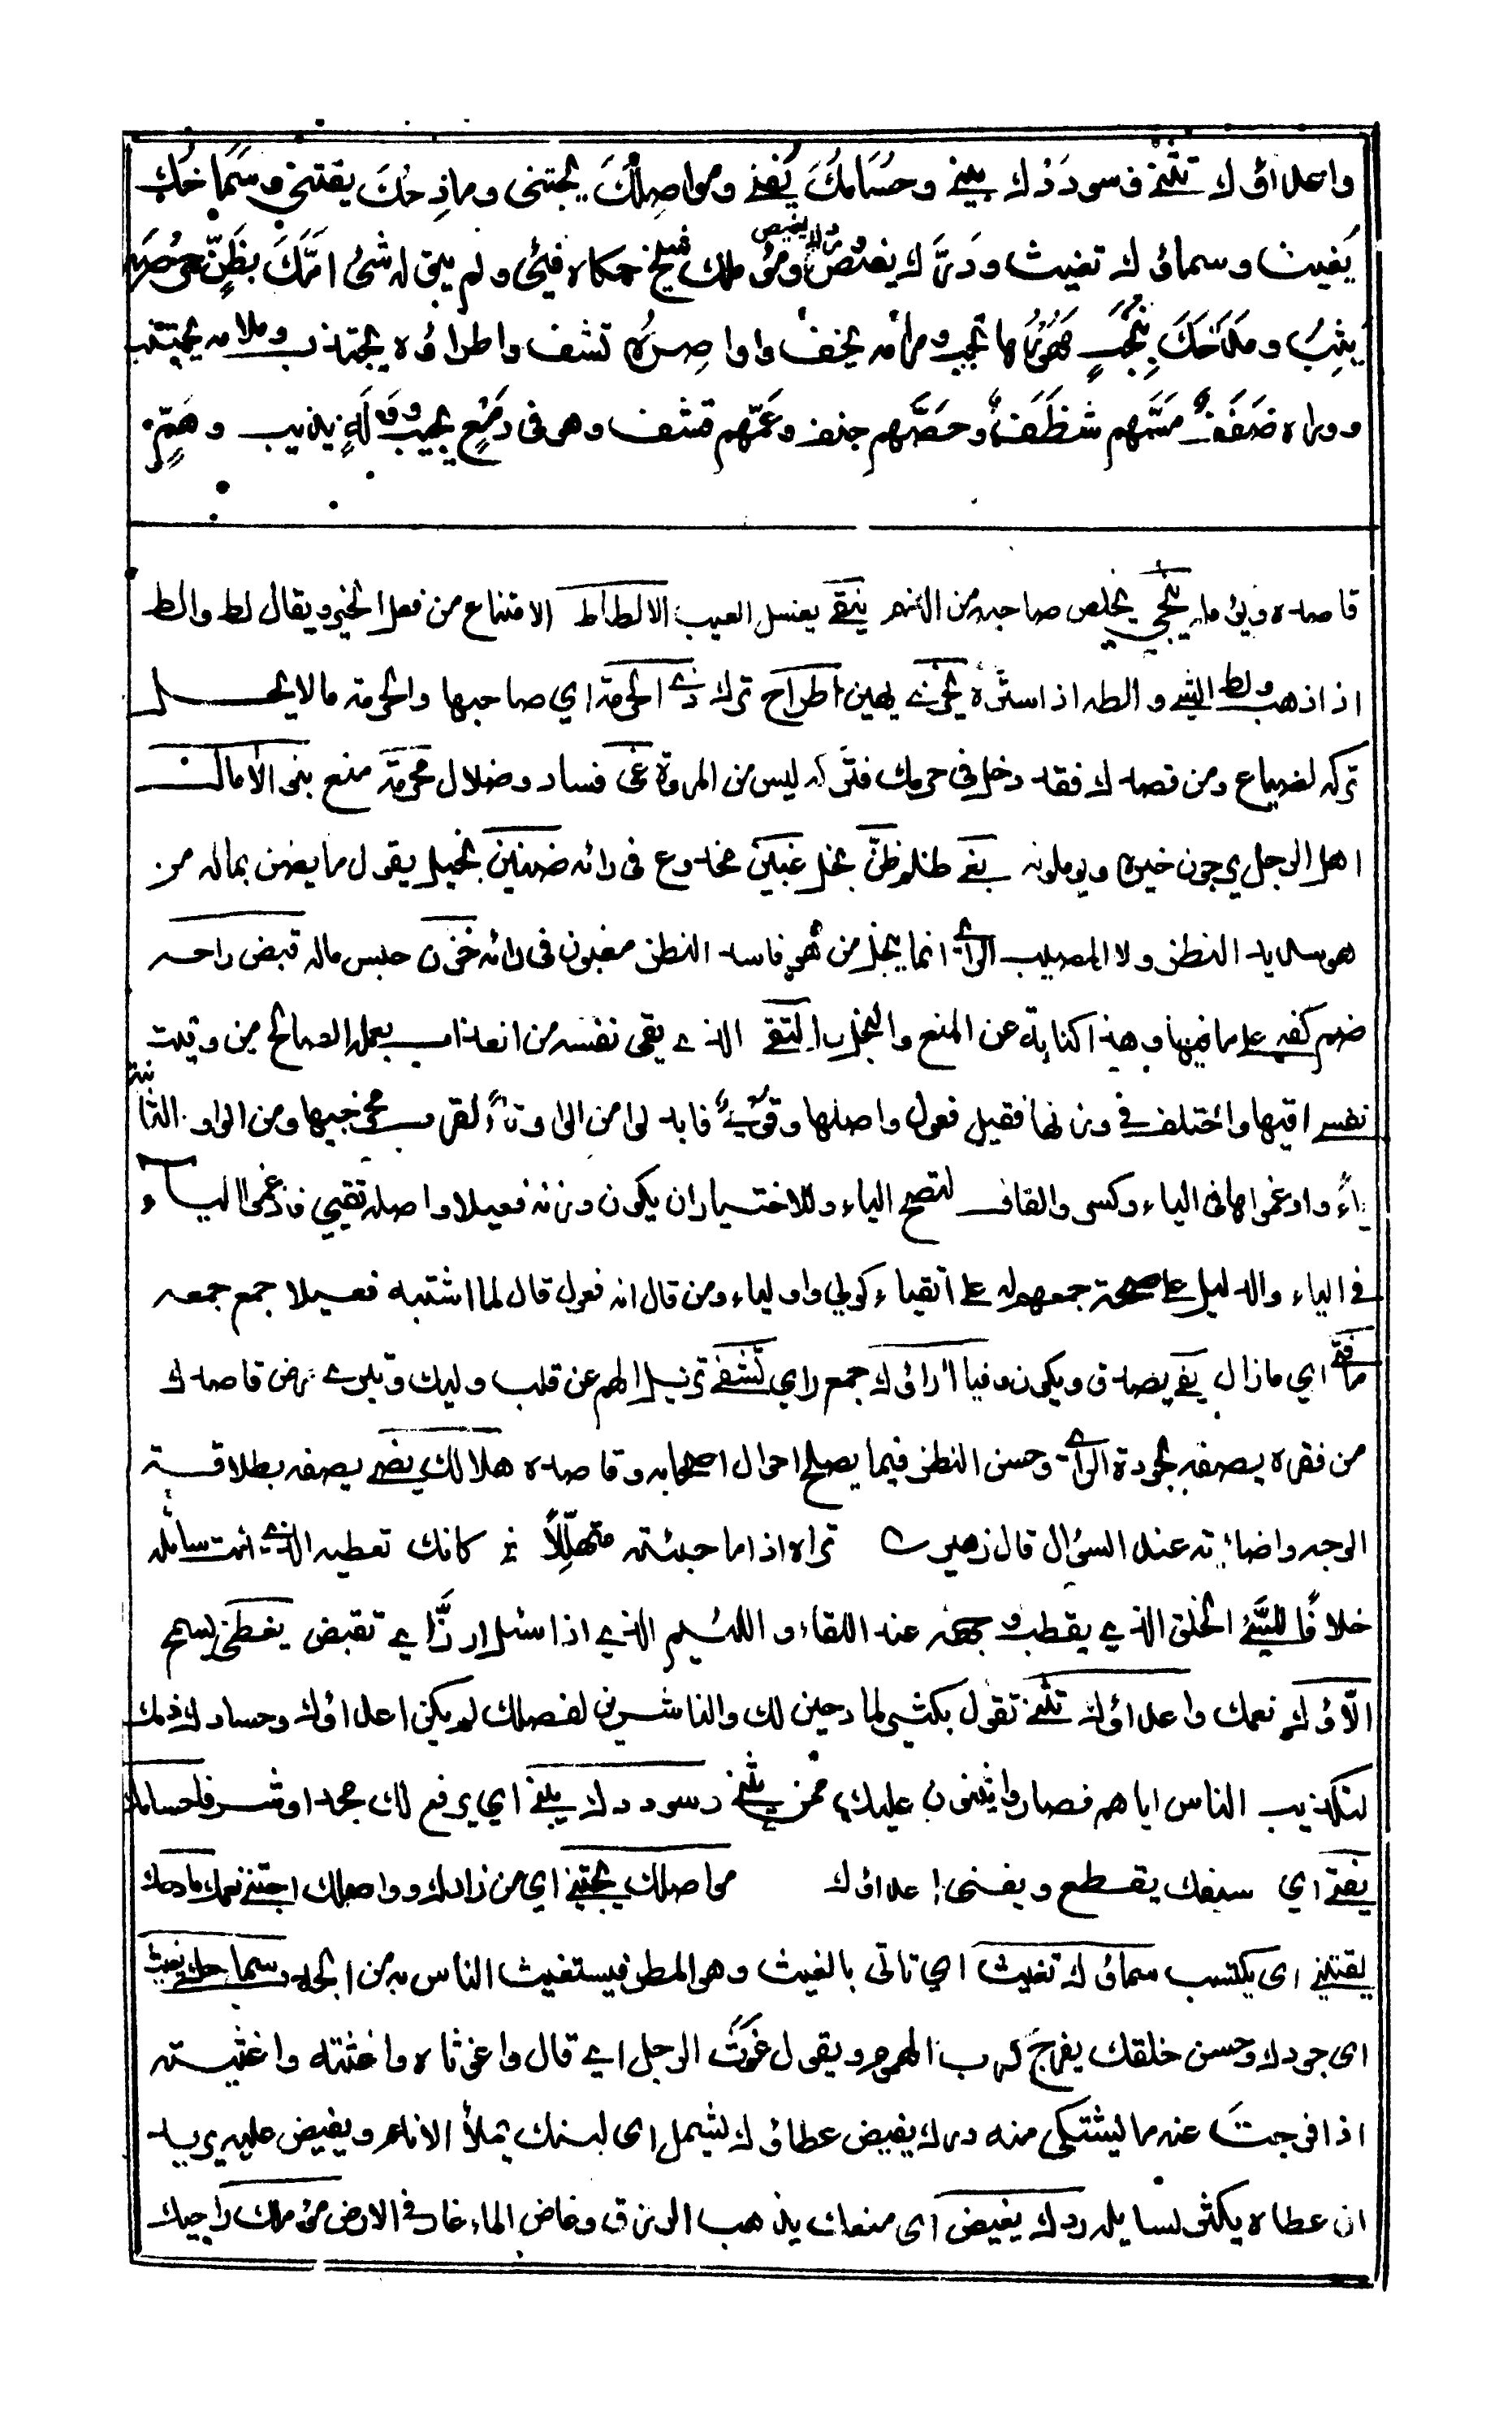 واعداؤك تثني وسوددك يبني وحسامك يفني ومواصلك يجتني ومادحك يقتني وسماحك
يغيث وسماؤك تغيث ودرّك يفيض وردك يغيض ومؤملك شيخ حكاه فيئ ولم يبق له شئ امّك بظنّ حرصه
يثب ومدحك بنخب مهورها تجب ومرامه يخف واواصره تشف واطراؤه يجتذب وملامه يجتنب
ووراه ضفف مسّهم شظف وحصّهم جنف وعمّهم قشف وهو في دمع يجيب ووله يذيب وهمّ
قاصده ويؤمله ينجي يخلص صاحبه من الاثم ينقي يغسل العيب الالطاط الامتناع من فعل الخير ويقال لط والط
اذا ذهب ولط الشي والطه اذا ستره يخزي يهين اطراح ترك ذي الحرمة اي صاحبها والحرمة ما لا يحل
تركه لضياع ومن قصدك فقد دخل في حرمك فتركه ليس من المروة غي فساد وضلال محرمة منع بني الآمال
اهل الرجل يرجون خيره ويوملونه بغي ظلم ظنّ بخل غبين مخدوع في رائه ضنين بخيل يقول ما يضن بماله من
هو سديد النظر ولا المصيب الرأي انما يبخل من هو فاسد النظر مغبون في رائه خزن حبس ماله قبض راحه
ضم كفه على ما فيها وهذا كناية عن المنع والبخل التقي الذي يقي نفسه من العذاب بعمل الصالح من وقيت
نفسي اقيها واختلف في وزنها فقيل فعول واصلها وقوي فابدلوا من الواو تاءً لقرب مخرجيها ومن الواو الثانية
ياءً وادغموا ها في الياء وكسروا القاف لتصح الياء والاختيار ان يكون وزنه فعيلا واصله تقيي فادغموا الياء
في الياء والدليل على صحته جمعهم له على اتقياء كولي واولياء ومن قال انه فعول قال لما اشتبه فعيلا جمع جمعه
ما فتي اي مازال يفي يصدق ويكون وفيا اراؤك جمع راي تشفي تزيل الهم عن قلب وليك وتبري مرض قاصدك
من فقره يصفه بجودة الرأي وحسن النظر فيما يصلح احوال اصحابه وقاصده هلالك يضي يصفه بطلاقة
الوجه واضائته عند السؤال قال زهير تراه اذا ما جئته متهلّلاً كانك تعطيه الذي انت سائله
خلافًا للسيّئ الخلق الذي يقطب وجهه عند اللقاء واللئيم الذي اذا سئل ارزّ اي تقبض يغضي يسمح
الاؤك نعمك واعداؤك تثني تقول بكثرة المادحين لك والناشرين لفضلك لم يمكن اعداؤك وحسادك ذمك
لتكذيب الناس اياهم فصاروا يثنون عليك ممن يثني وسوددك يبني اي يرفع لك مجدا وشرفا حسامك
يفني اي سيفك يقطع ويفني اعداؤك مواصلك يجتني اي من زارك وواصلك اجتني نعمك مادحك
يقتني اي يكتسب سماؤك تغيث اي تاتي بالغيث وهو المطر فيستغيث الناس به من الجدب وسماحك يغيث
اي جودك وحسن خلقك يفرج كرب الهموم ويقول غوّث الرجل اي قال واغوثاه واغثته واغثيته
اذا فرجت عنه ما يشتكي منه درك يفيض عطاؤك يشمل اي لبنك يملأ الاناء ويفيض عليه يريد
ان عطاه يكثر لسايله ردك يغيض اي منعك يذهب الرزق وغاض الماء غار في الارض مؤملك راجيك